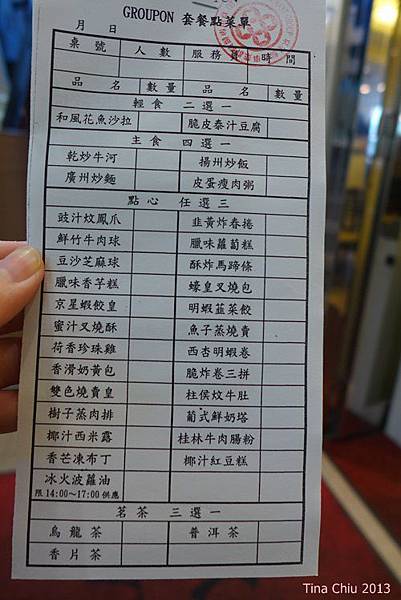 GROUPON 套餐點菜單
月 日
桌號 人數 服務員 時間
品名 數量 品名 數量
輕食 二選一
和風花魚沙拉 脆皮泰汁豆腐
主食 四選一
乾炒牛河 揚州炒飯
廣州炒麵 皮蛋瘦肉粥
點心 任選三
豉汁炆鳳爪 韭黃炸春捲
鮮竹牛肉球 臘味蘿蔔糕
豆沙芝麻球 酥炸馬蹄條
臘味香芋糕 蠔皇叉燒包
京星蝦餃皇 明蝦韮菜餃
蜜汁叉燒酥 魚子蒸燒賣
荷香珍珠雞 西杏明蝦卷
香滑奶黃包 脆炸卷三拼
雙色燒賣皇 柱侯炆牛肚
樹子蒸肉排 葡式鮮奶塔
椰汁西米露 桂林牛肉腸粉
香芒凍布丁 椰汁紅豆糕
冰火波蘿油
限14:00~17:00供應
茗茶 三選一
烏龍茶 普洱茶
香片茶
Tina Chiu 2013